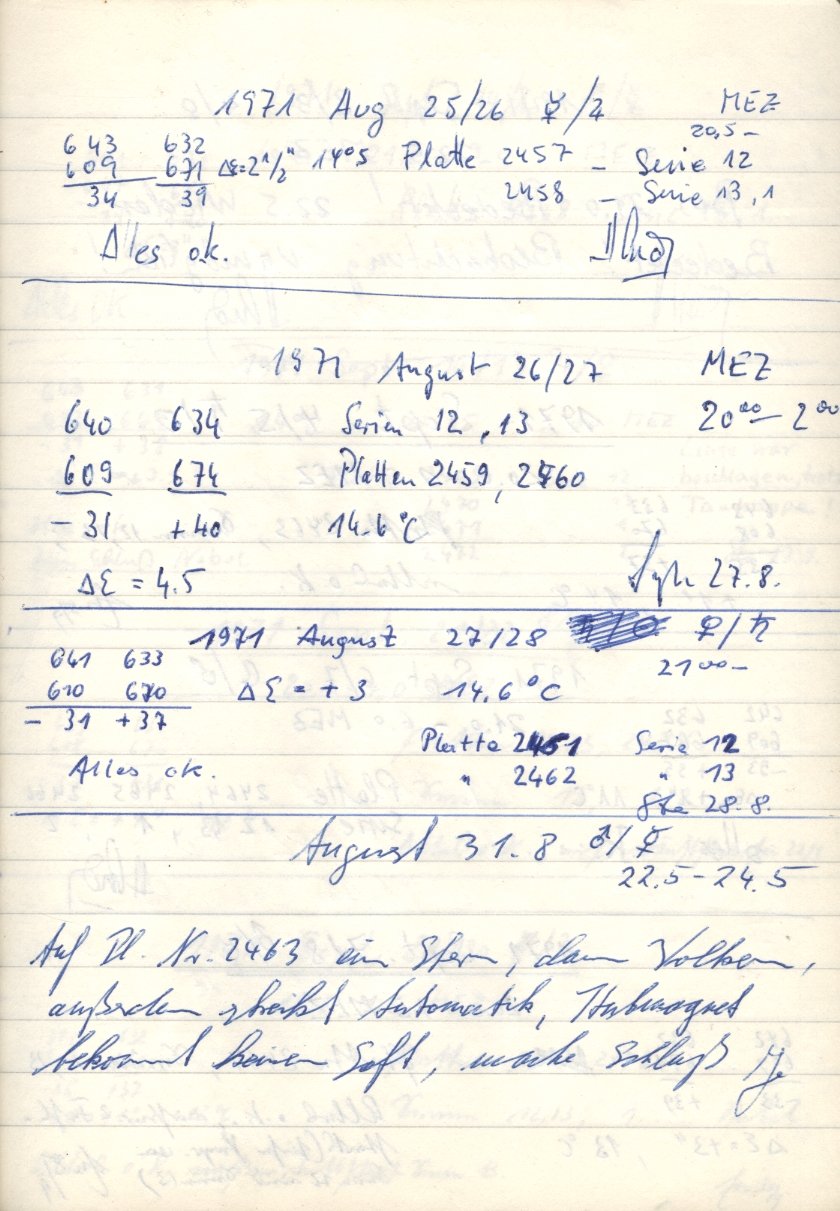 1971 Aug 25/26 ☿/♃ MEZ
20,5 –
643 632 Δε=2½" 14°5 Platte 2457 – Serie 12
609 671 2458 – Serie 13,1
34 39
Alles o.k.
1971 August 26/27 MEZ
640 634 Serien 12, 13 20°° – 2°°
609 674 Platten 2459, 2460
– 31 +40 14.6 °C
Δε = 4.5 27.8.
1971 August 27/28 ♀/♄
641 633 21°° –
610 670 Δε = + 3 14.6 °C
– 31 +37
Platte 2461 Serie 12
Alles ok. " 2462 " 13
28.8.
August 31.8 ♂/☿
22.5 – 24.5
Auf Pl. Nr. 2463 ein Stern, dann Wolken,
außerdem streikt Automatik, Hubmagnet
bekommt keinen Saft, mache Schluß